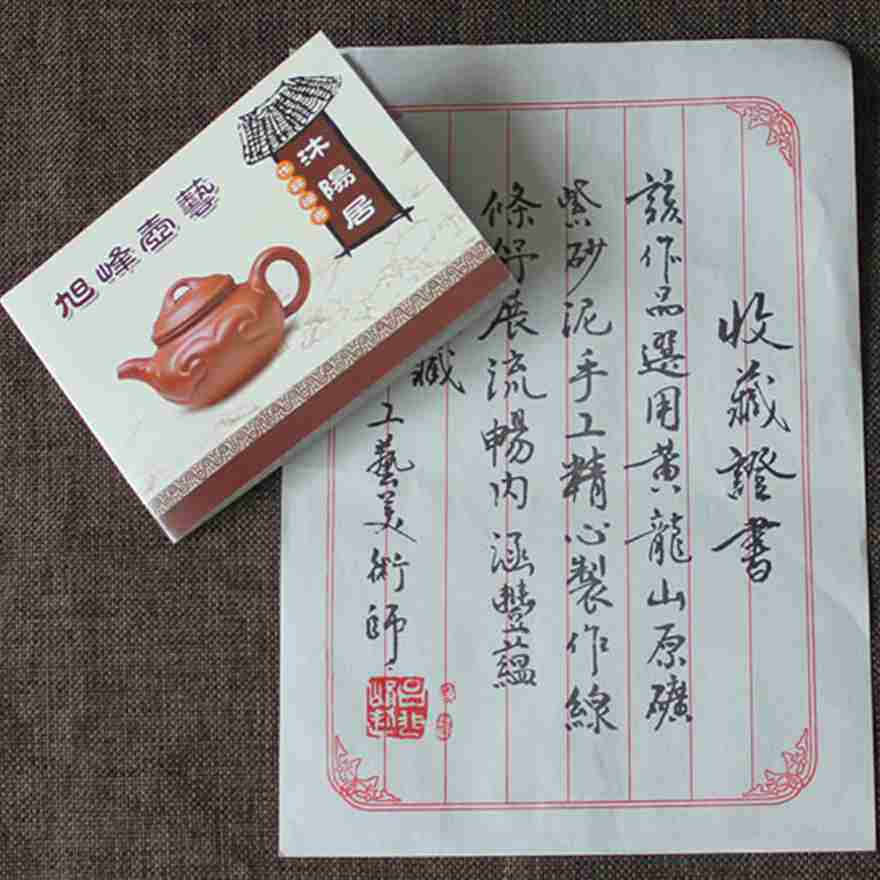 收藏證書
該作品選用黃龍山原礦
紫砂泥手工精心製作線
條舒展流暢內涵豐蘊
藏
工藝美術師
旭峰壺藝
沐陽居